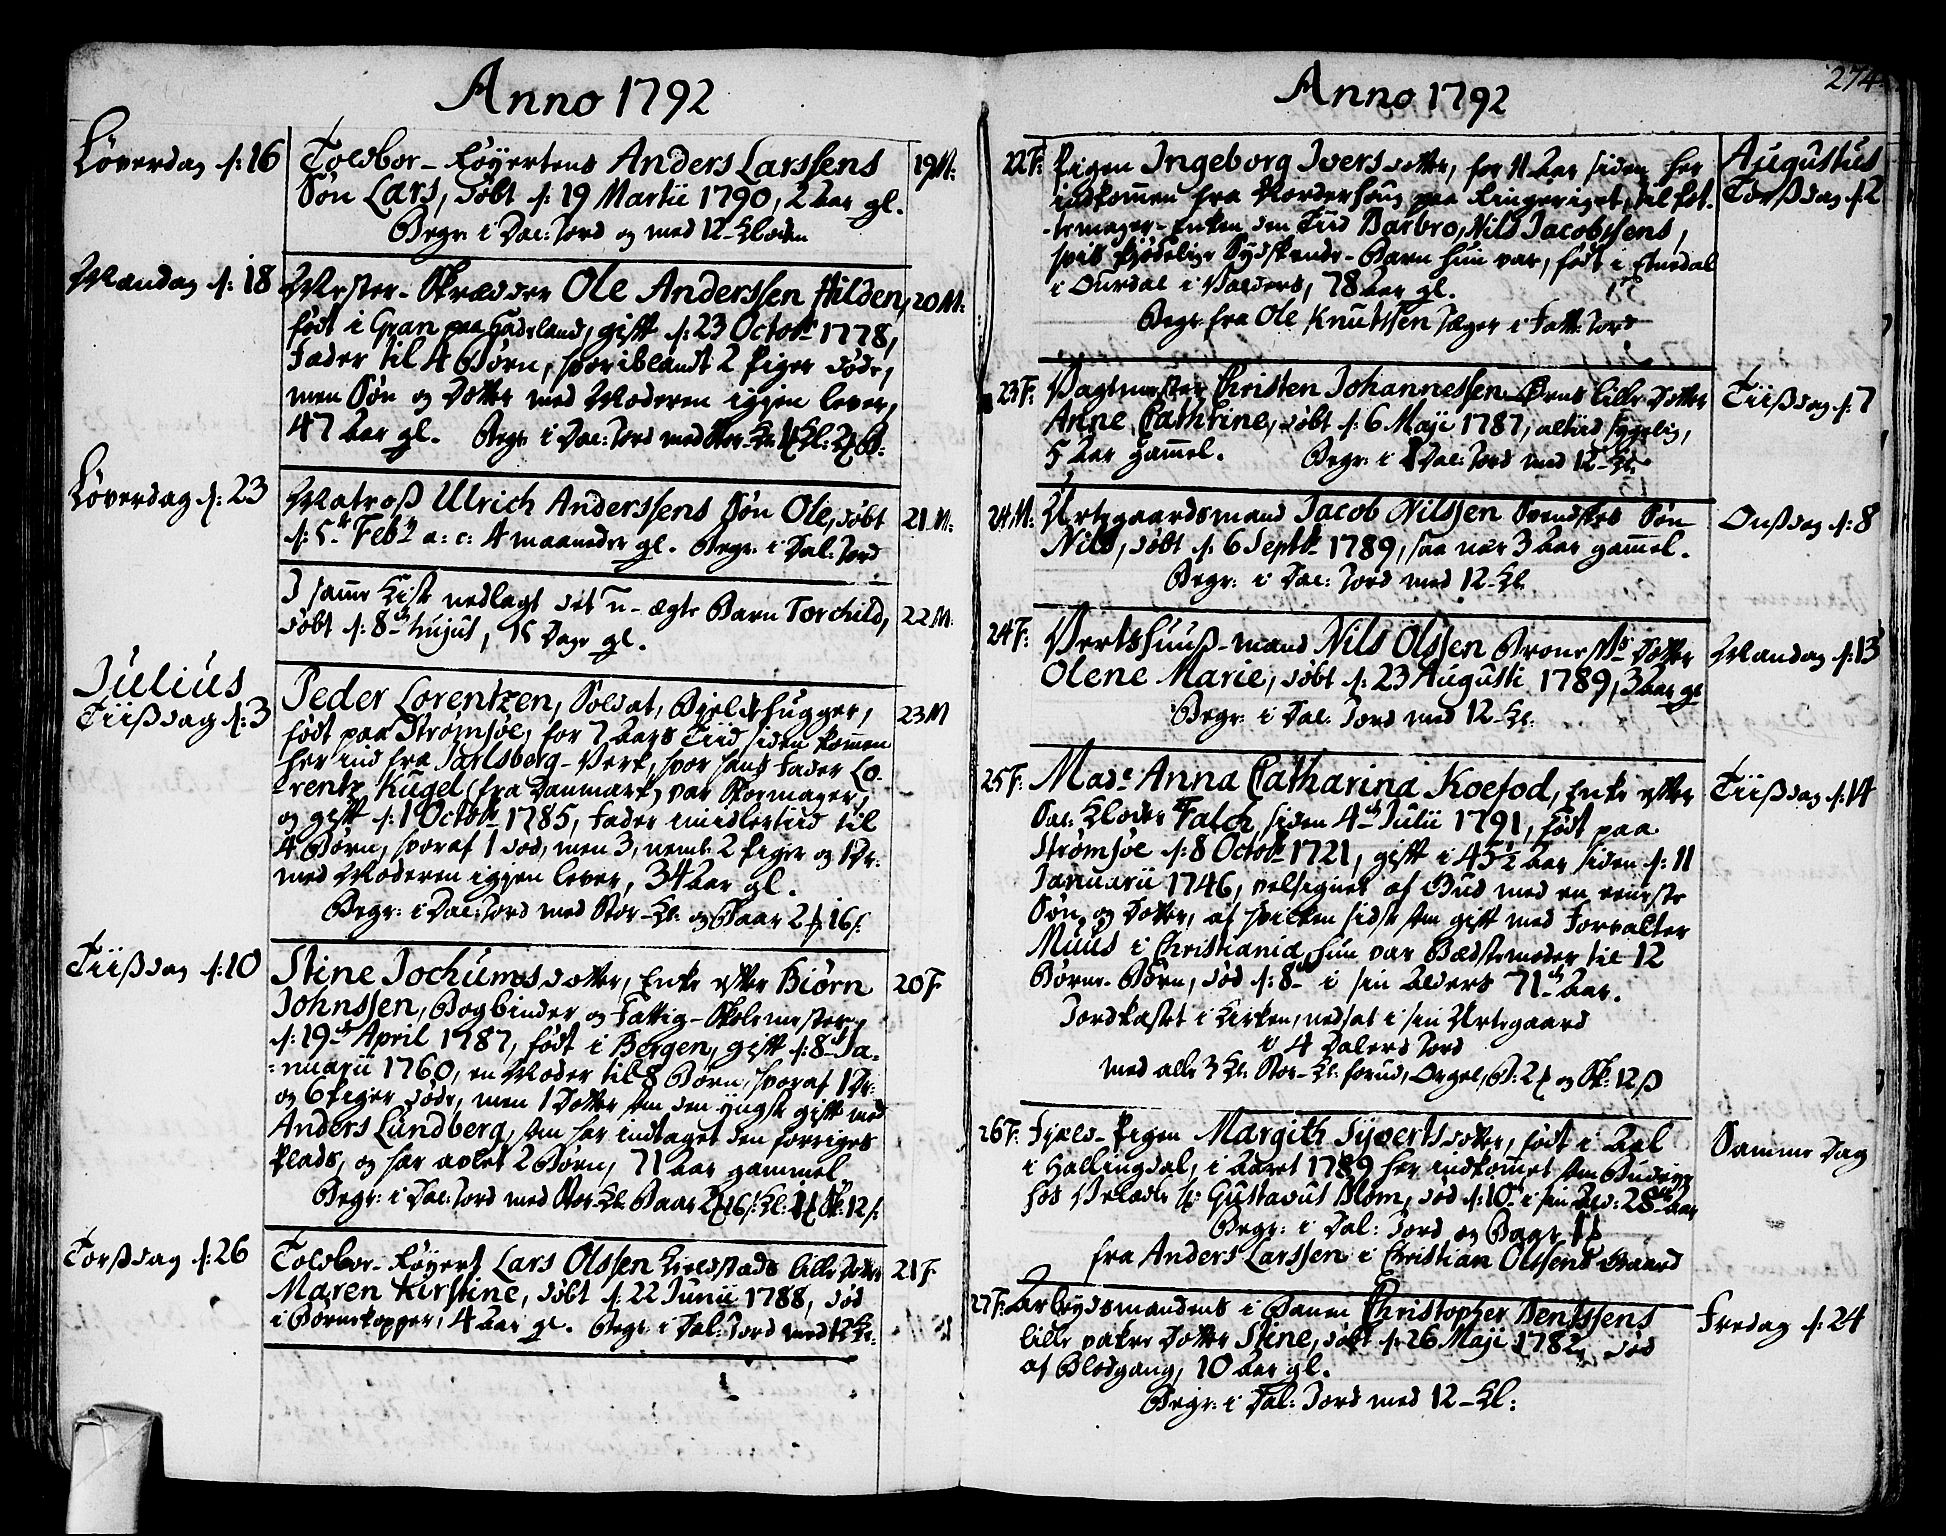 Anno 1792
Løverdag d: 16
Toldbor-Røyertens Anders Larssens
Søn Lars, døbt d: 19 Martii 1790, 2 Aar gl.
Begr: i Dal: Jord og med 12-Kloken
19 M:
Mandag d: 18
Mester-Skrædder Ole Anderssen Hilden,
født i Gran paa Hadeland, gift d: 23 Octobr 1778,
Fader til 4 Børn, hvoriblandt 2 Piger døde,
men Søn og Dotter med Moderen igjen lever,
47 Aar gl. Begr: i Dal: Jord med Stor-Kl:
20 M:
Løverdag d: 23
Matros Ulrich Anderssens Søn Ole, døbt
d: 5te Febr a: c: 4 maaneder gl. Begr: i Dal: Jord
21 M:
I samme Kiste nedlagt det u-ægte Barn Torchild,
døbt d: 8de hujus, 15 Dage gl.
22 M:
Julius
Tiißdag d: 3
Peder Lorentzen, Soldat, Bielkhugger,
født paa Strømsøe, for 7 Aars Tiid siden kommen
her ind fra Jarlsberg-Verk, hvor hans Fader Lo-
-rentz Kugel (fra Danmark) var Skomager,
og gift d: 1 Octobr 1785, Fader imidlertiid til
4 Børn, hvoraf 1 død, men 3, neml: 2 Piger og 1 Dr:
med Moderen igjen lever, 34 Aar gl.
Begr: i Dal: Jord med Stor-Kl: og Baar 2 16 s:
23 M
Tiißdag d: 10
Stine Jochumsdotter, Enke efter Biørn
Johnssen, Bogbinder og Fattig-Skolemester,
d: 19de April 1787, født i Bergen, gift d: 8de Ja-
-nuarii 1760, en Moder til 8 Børn, hvoraf 1 Dr:
og 6 Piger døde, men 1 Dotter som den yngste gift med
Anders Lundberg, som har indtaget den forriges
Plads, og har avlet 2 Børn, 71 Aar gammel
Begr: i Dal: Jord med Stor-Kl: Baar
20 F
Torßdag d: 26
Toldbor-Røyert Lars Olssen Kieldstads lille Dotter
Maren Kirstine, døbt d: 22 Junii 1788, død
i Børnekopper, 4 Aar gl. Begr: i Dal: Jord med 12 Kl:
21 F
Anno 1792
274
22 F:
Pigen Ingeborg Iversdotter, for 11 Aar siden her
indkommen fra Norderhoug paa Ringeriget, til Pot-
-temager-Enken den Tiid Barbro, Nils Jacobssens,
hvis kiødelige Sydskende-Barn hun var, født i Etnedal
i Ourdal i Valders, 78 Aar gl.
Begr: fra Ole Knutssen Jæger i Fatt: Jord
Augustus
Torßdag d: 2
23 F:
Vagtmester Christen Johannessen Ørns lille Dotter
Anne Cathrine, døbt d: 6 Maji 1787, altiid sygelig,
5 Aar gammel. Begr: i Dal: Jord med 12-Kl.
Tiißdag d: 7
24 M:
Urtegaardsmand Jacob Nilssen Svendsens Søn
Nils, døbt d: 6 Septbr 1789, saa nær 3 Aar gammel.
Begr: i Dal: Jord med 12-Kl
Onßdag d: 8
24 F:
Vertshuuß-mand Nils Olssen Dotter
Olene Marie, døbt d: 23 Augusti 1789, 3 Aar gl
Begr: i Dal: Jord med 12-Kl:
Mandag d: 13
25 F:
Made Anna Catharina Koefod, Enke efter
Sal: Kloker Falch, siden 4de Julii 1791, født paa
Strømsøe d: 8 Octobr 1721, gift i 45½ Aar siden d: 11
Januarii 1746, velsignet af Gud med en eeneste
Søn og Dotter, af hvilken sidste som gift med Forvalter
Muus i Christiania, hun var Bædstemoder til 12
Børne-Børn, død d: 8de i sin Alders 71de Aar.
Jordkastet i Kirken, nedsat i sin Urtegaard
i 4 Dalers Jord
med alle 3 Kl: Stor-Kl: forud, Orgel, B: 2 og Sk: 12 ß
Tiißdag d: 14
26 F:
Fjæld-Pigen Margith Syvertsdotter, født i Aal
i Hallingdal, i Aaret 1789 her indkommet som Budeye
hos Vel-Ædle Hr: Gustavus Blom, død d: 10de i sin Ald: 28de Aar
Begr: i Dal: Jord og Baar
fra Anders Larssen i Christian Olssens Gaard
Samme Dag
27 F:
Arbeydsmandens i Banen Christopher Bentssens
lille vakre Dotter Stine, døbt d: 26 Maji 1782, død
af Blodgang, 10 Aar gl.
Begr: i Dal: Jord med 12-Kl:
Fredag d: 24